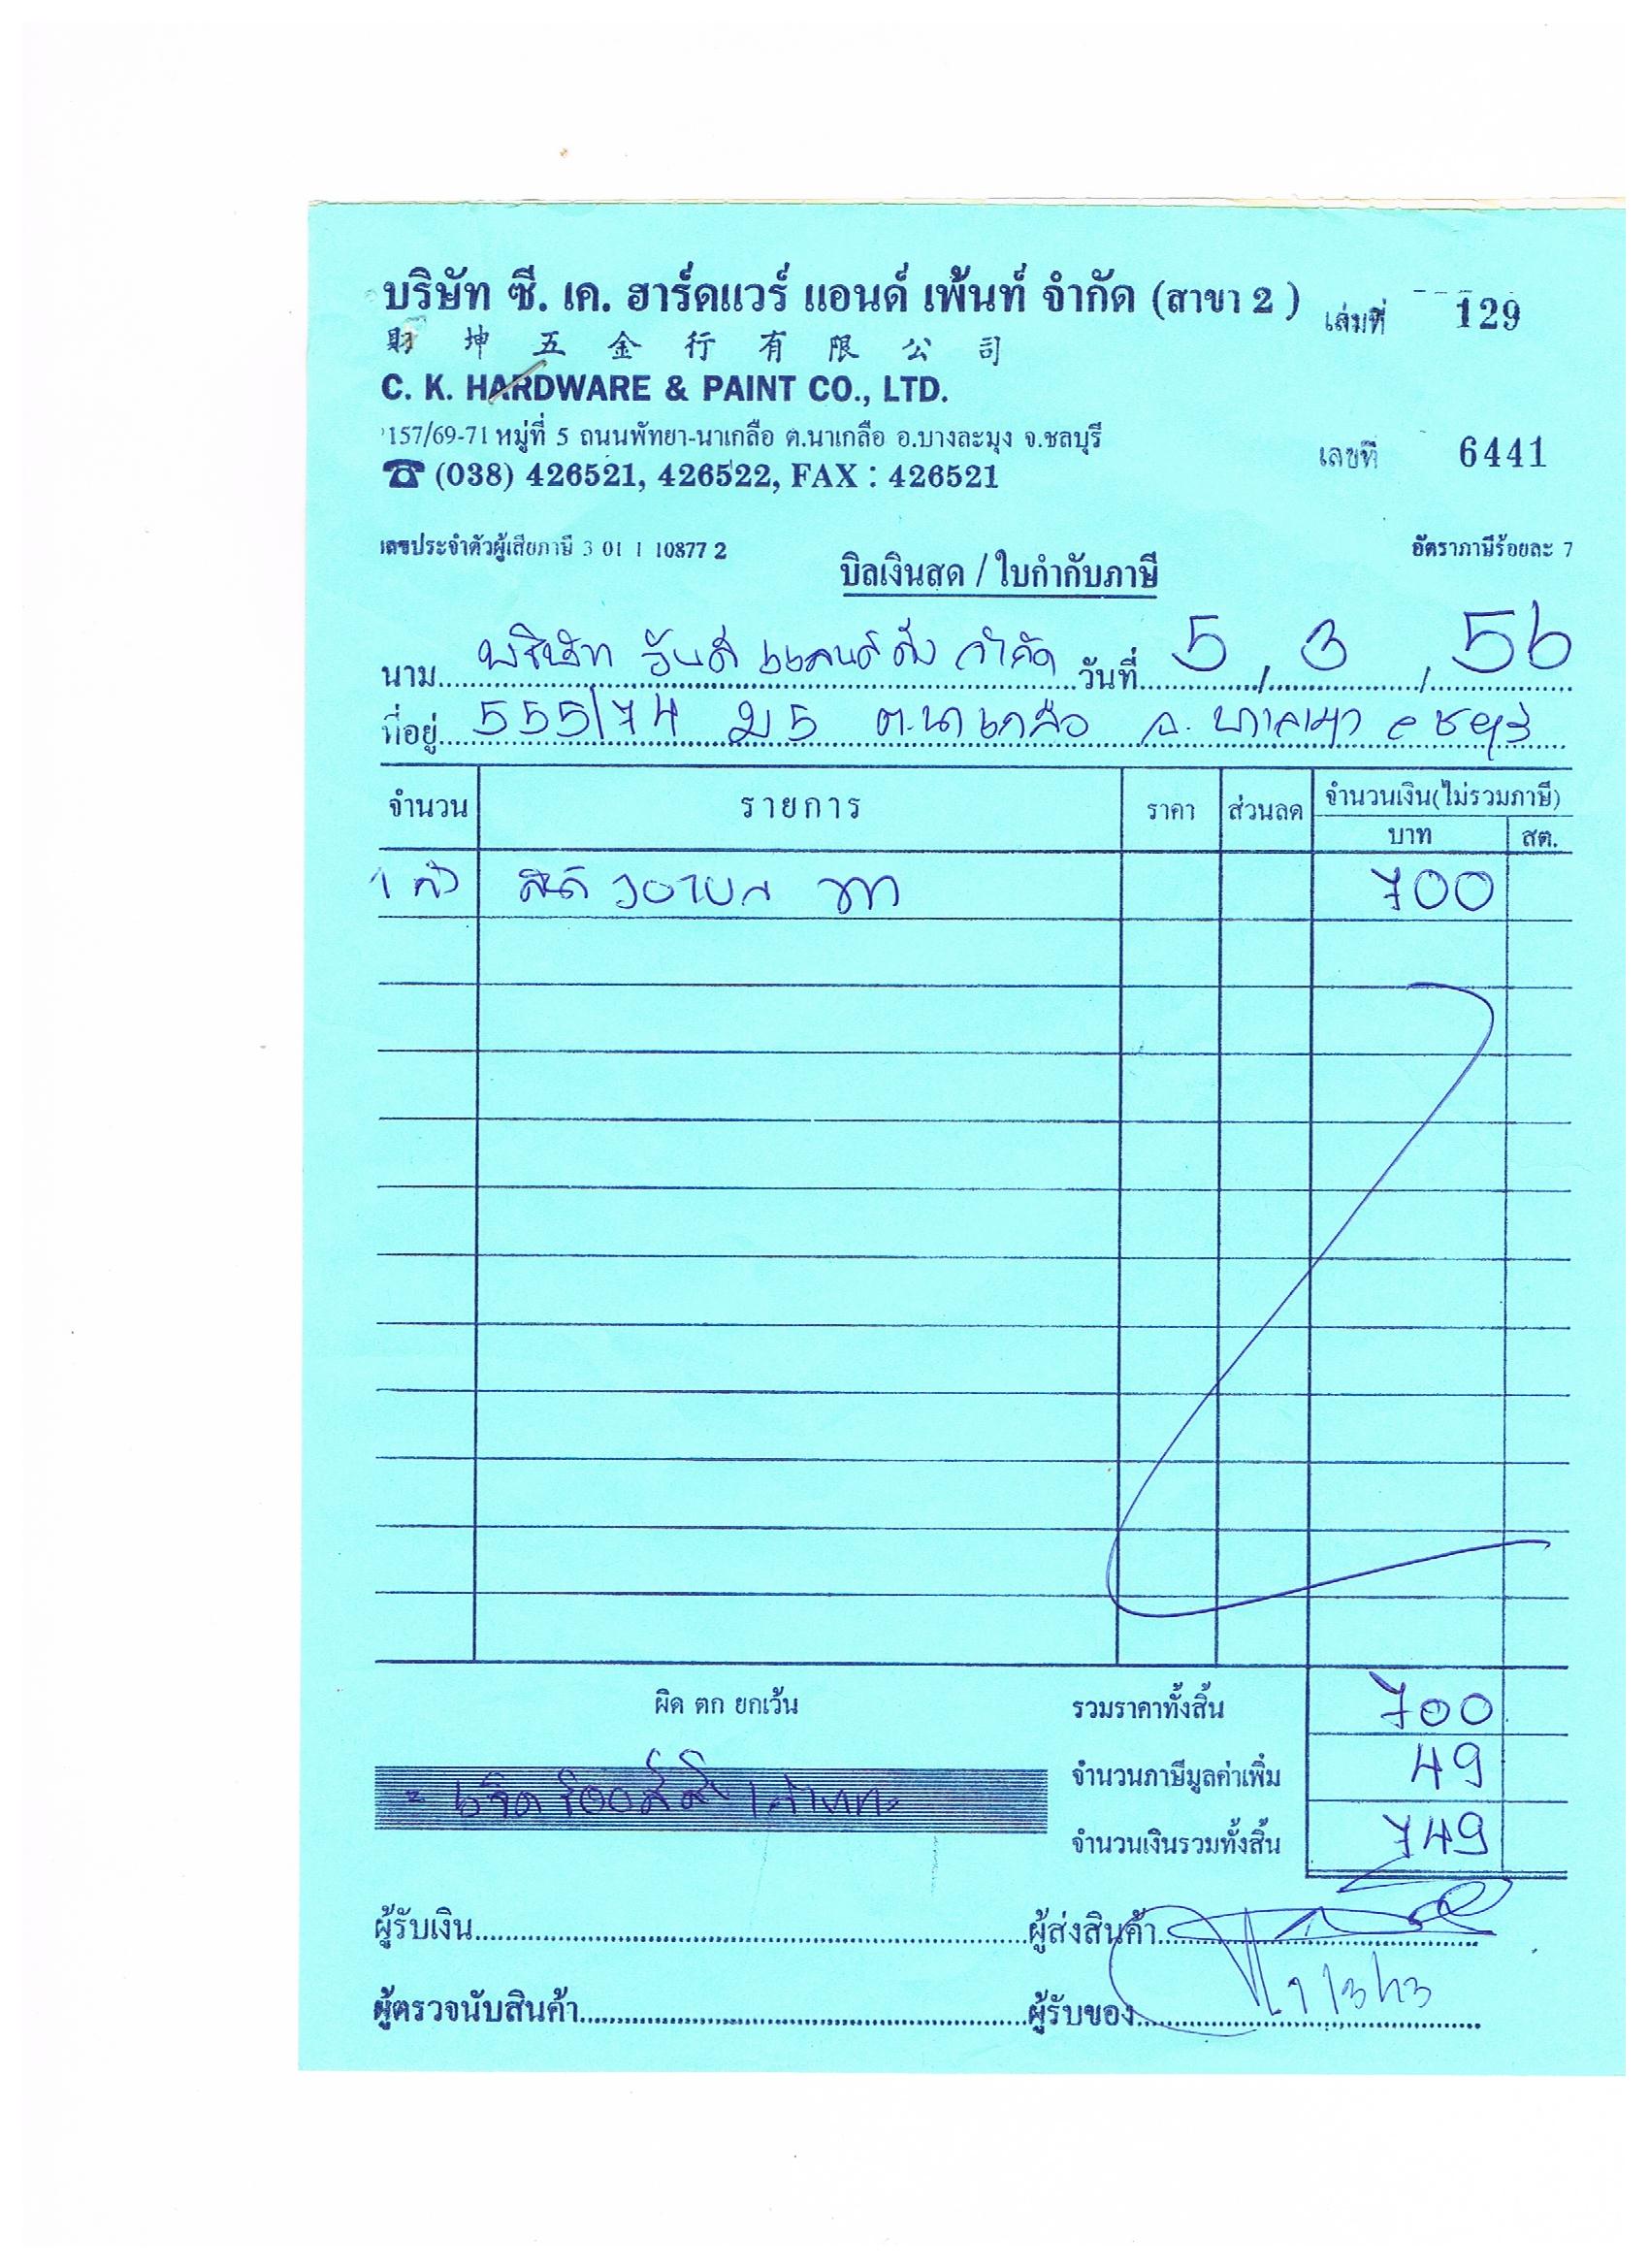 บริษัท ซี. เค. ฮาร์ดแวร์ แอนด์ เพ้นท์ จำกัด (สาขา 2 ) เล่มที่ 129
財 坤 五 金 行 有 限 公 司
C. K. HARDWARE & PAINT CO., LTD.
157/69-71 หมู่ที่ 5 ถนนพัทยา-นาเกลือ ต.นาเกลือ อ.บางละมุง จ.ชลบุรี
เลขที่ 6441
☎ (038) 426521, 426522, FAX : 426521
เลขประจำตัวผู้เสียภาษี 3 01 1 10877 2
อัตราภาษีร้อยละ 7
บิลเงินสด / ใบกำกับภาษี
นาม บริษัท วันดี แลนด์ จำกัด วันที่ 5 / 3 / 56
ที่อยู่ 555/74 ม 5 ต.นาเกลือ อ.
จำนวน รายการ ราคา ส่วนลด จำนวนเงิน(ไม่รวมภาษี)
บาท สต.
1 700
ผิด ตก ยกเว้น รวมราคาทั้งสิ้น 700
จำนวนภาษีมูลค่าเพิ่ม 49
จำนวนเงินรวมทั้งสิ้น 749
ผู้รับเงิน ผู้ส่งสินค้า
ผู้ตรวจนับสินค้า ผู้รับของ